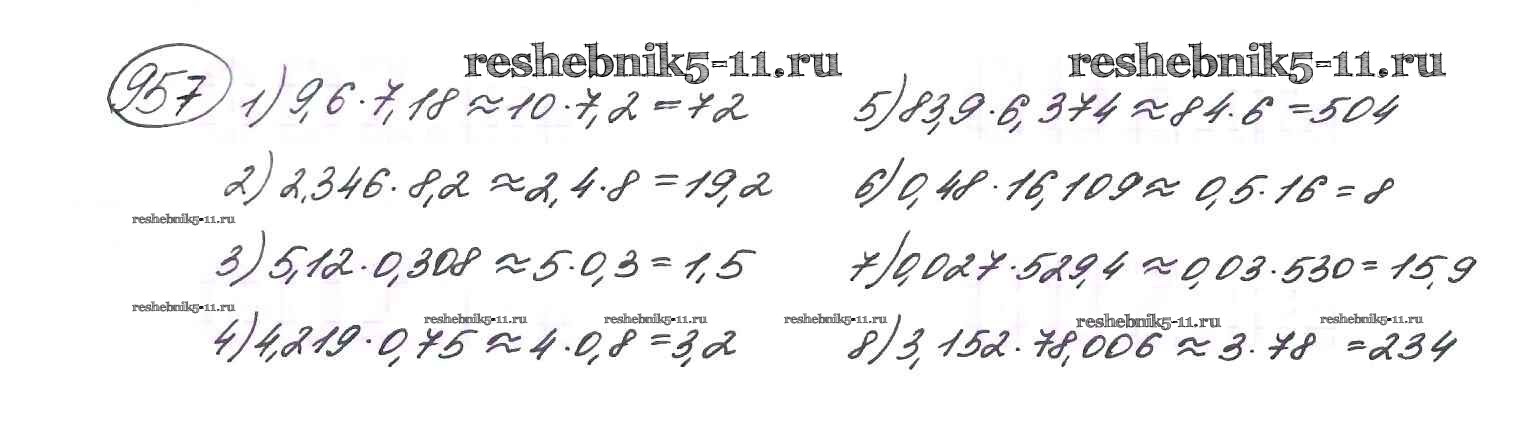 reshebnik5-11.ru reshebnik5-11.ru
957 1) 9,6·7,18 ≈ 10·7,2 = 72
5) 83,9·6,374 ≈ 84·6 = 504
2) 2,346·8,2 ≈ 2,4·8 = 19,2
6) 0,48·16,109 ≈ 0,5·16 = 8
reshebnik5-11.ru
3) 5,12·0,308 ≈ 5·0,3 = 1,5
7) 0,027·529,4 ≈ 0,03·530 = 15,9
reshebnik5-11.ru reshebnik5-11.ru reshebnik5-11.ru reshebnik5-11.ru reshebnik5-11.ru reshebnik5-11.ru
4) 4,219·0,75 ≈ 4·0,8 = 3,2
8) 3,152·78,006 ≈ 3·78 = 234